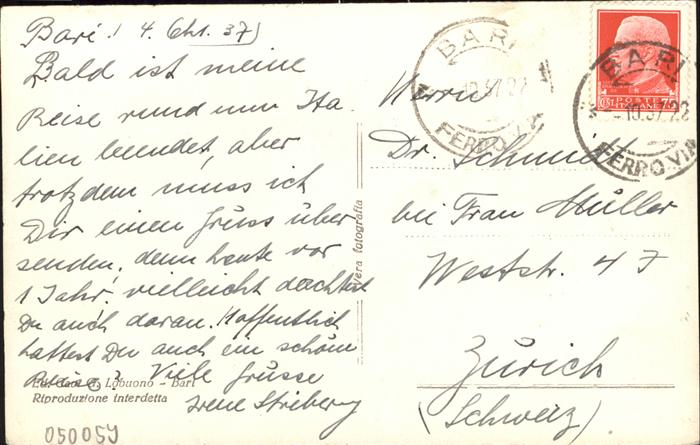 Bari! 4. Okt. 37)
Bald ist meine
Reise rund um Ita
lien beendet, aber
trotzdem muss ich
Dir einen Gruss über
senden, denn heute vor
1 Jahr! vielleicht dachtest
Du auch daran. Hoffentlich
hattest Du auch ein schöne
Reise? Viele Grüsse
Irene
Lobuono - Bari
Riproduzione interdetta
050059
Vera fotografia
BARI
10.37.22
FERROVIA
POSTE
ITALIANE
BARI
10.37.22
FERROVIA
Herrn
Dr. Schmid
bei Frau Müller
Weststr. 47
Zürich
(Schweiz)